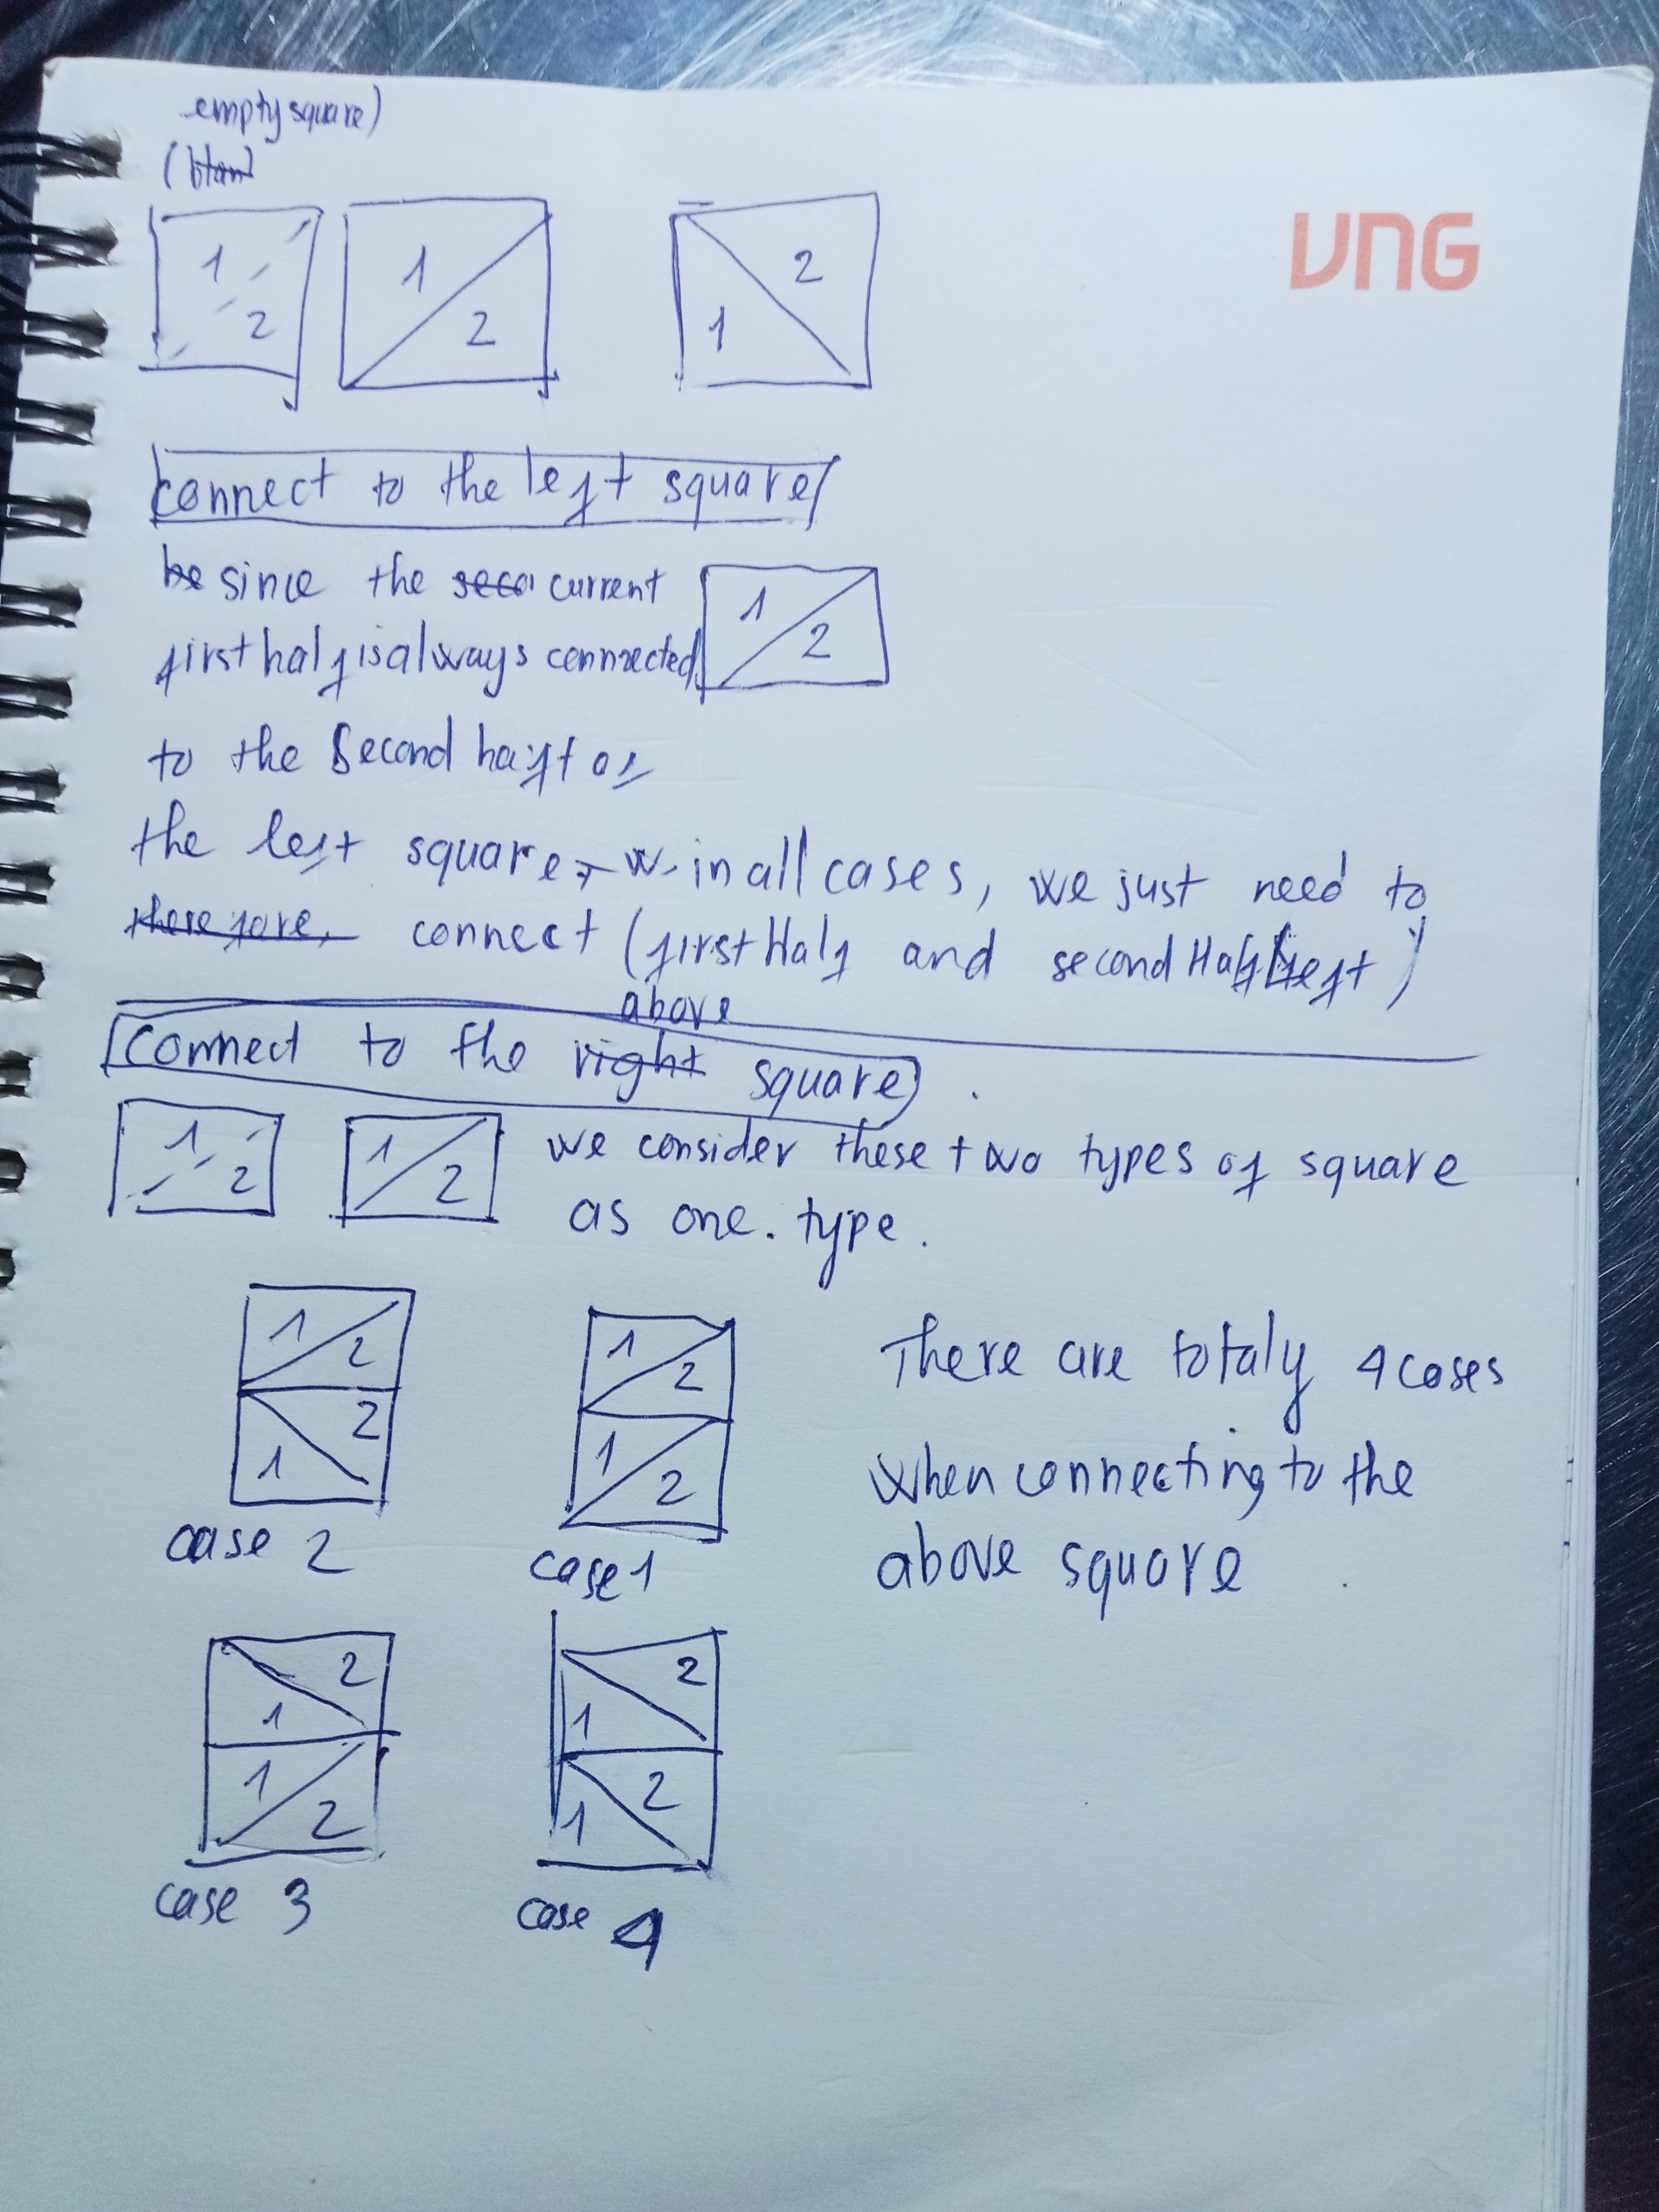 empty square)
(blan
VNG
1 2
1 2
2 1
connect to the left square
be since the seco current
first half is always connected
1 2
to the Second half of
the left square, w in all cases, we just need to
therefore, connect (first Half and second Half left)
above
Connect to the right square.
1 2
1 2
we consider these two types of square
as one. type.
1 2
2 1
case 2
1 2
1 2
case 1
There are totaly 4 cases
when connecting to the
above square
2 1
1 2
case 3
2 1
2 1
case 4